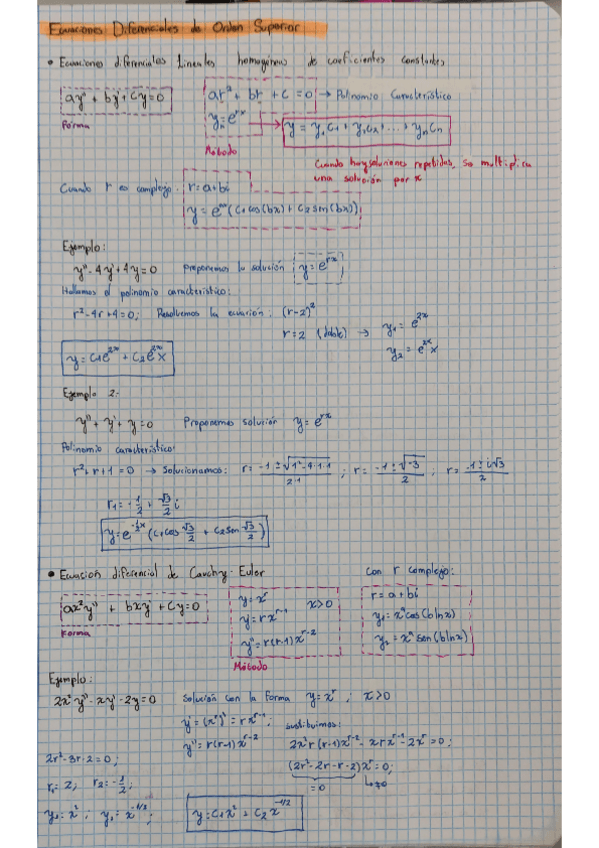 Ecuaciones Diferenciales de Orden Superior
• Ecuaciones diferenciales Lineales homogéneas de coeficientes constantes
ay'' + by' + cy = 0
Forma
ar² + br + c = 0 → Polinomio Característico
y = e^rx
Método
y = y₁c₁ + y₂c₂ + ... + yₙcₙ
Cuando hay soluciones repetidas, se multiplica
una solución por x
Cuando r es complejo:
r = a + bi
y = e^ax (c₁cos(bx) + c₂sen(bx))
Ejemplo:
y'' - 4y' + 4y = 0 Proponemos la solución y = e^rx
Hallamos el polinomio característico:
r² - 4r + 4 = 0; Resolvemos la ecuación: (r-2)²
r = 2 (doble) → y₁ = e^2x
y₂ = e^2x x
y = c₁e^2x + c₂e^2x x
Ejemplo 2:
y'' + y' + y = 0 Proponemos solución y = e^rx
Polinomio característico:
r² + r + 1 = 0 → Solucionamos: r = (-1 ± √(1² - 4·1·1))/(2·1) ; r = (-1 ± √-3)/2 ; r = (-1 ± i√3)/2
r₁ = -1/2 + √3/2 i
y = e^(-1/2 x) (c₁cos √3/2 + c₂sen √3/2)
• Ecuación diferencial de Cauchy-Euler
ax²y'' + bxy' + cy = 0
Forma
y = x^r
y' = rx^(r-1) x>0
y'' = r(r-1)x^(r-2)
Método
con r complejo:
r = a + bi
y₁ = x^a cos(b lnx)
y₂ = x^a sen(b lnx)
Ejemplo:
2x²y'' - xy' - 2y = 0 Solución con la forma y = x^r ; x>0
y' = (x^r)' = rx^(r-1); sustituimos:
y'' = r(r-1)x^(r-2) 2x²r(r-1)x^(r-2) - xrx^(r-1) - 2x^r = 0;
(2r² - 2r - r - 2)x^r = 0;
= 0 ↳ ≠0
2r² - 3r - 2 = 0;
r₁ = 2, r₂ = -1/2;
y₁ = x² ; y₂ = x^(-1/2);
y = c₁x² + c₂x^(-1/2)